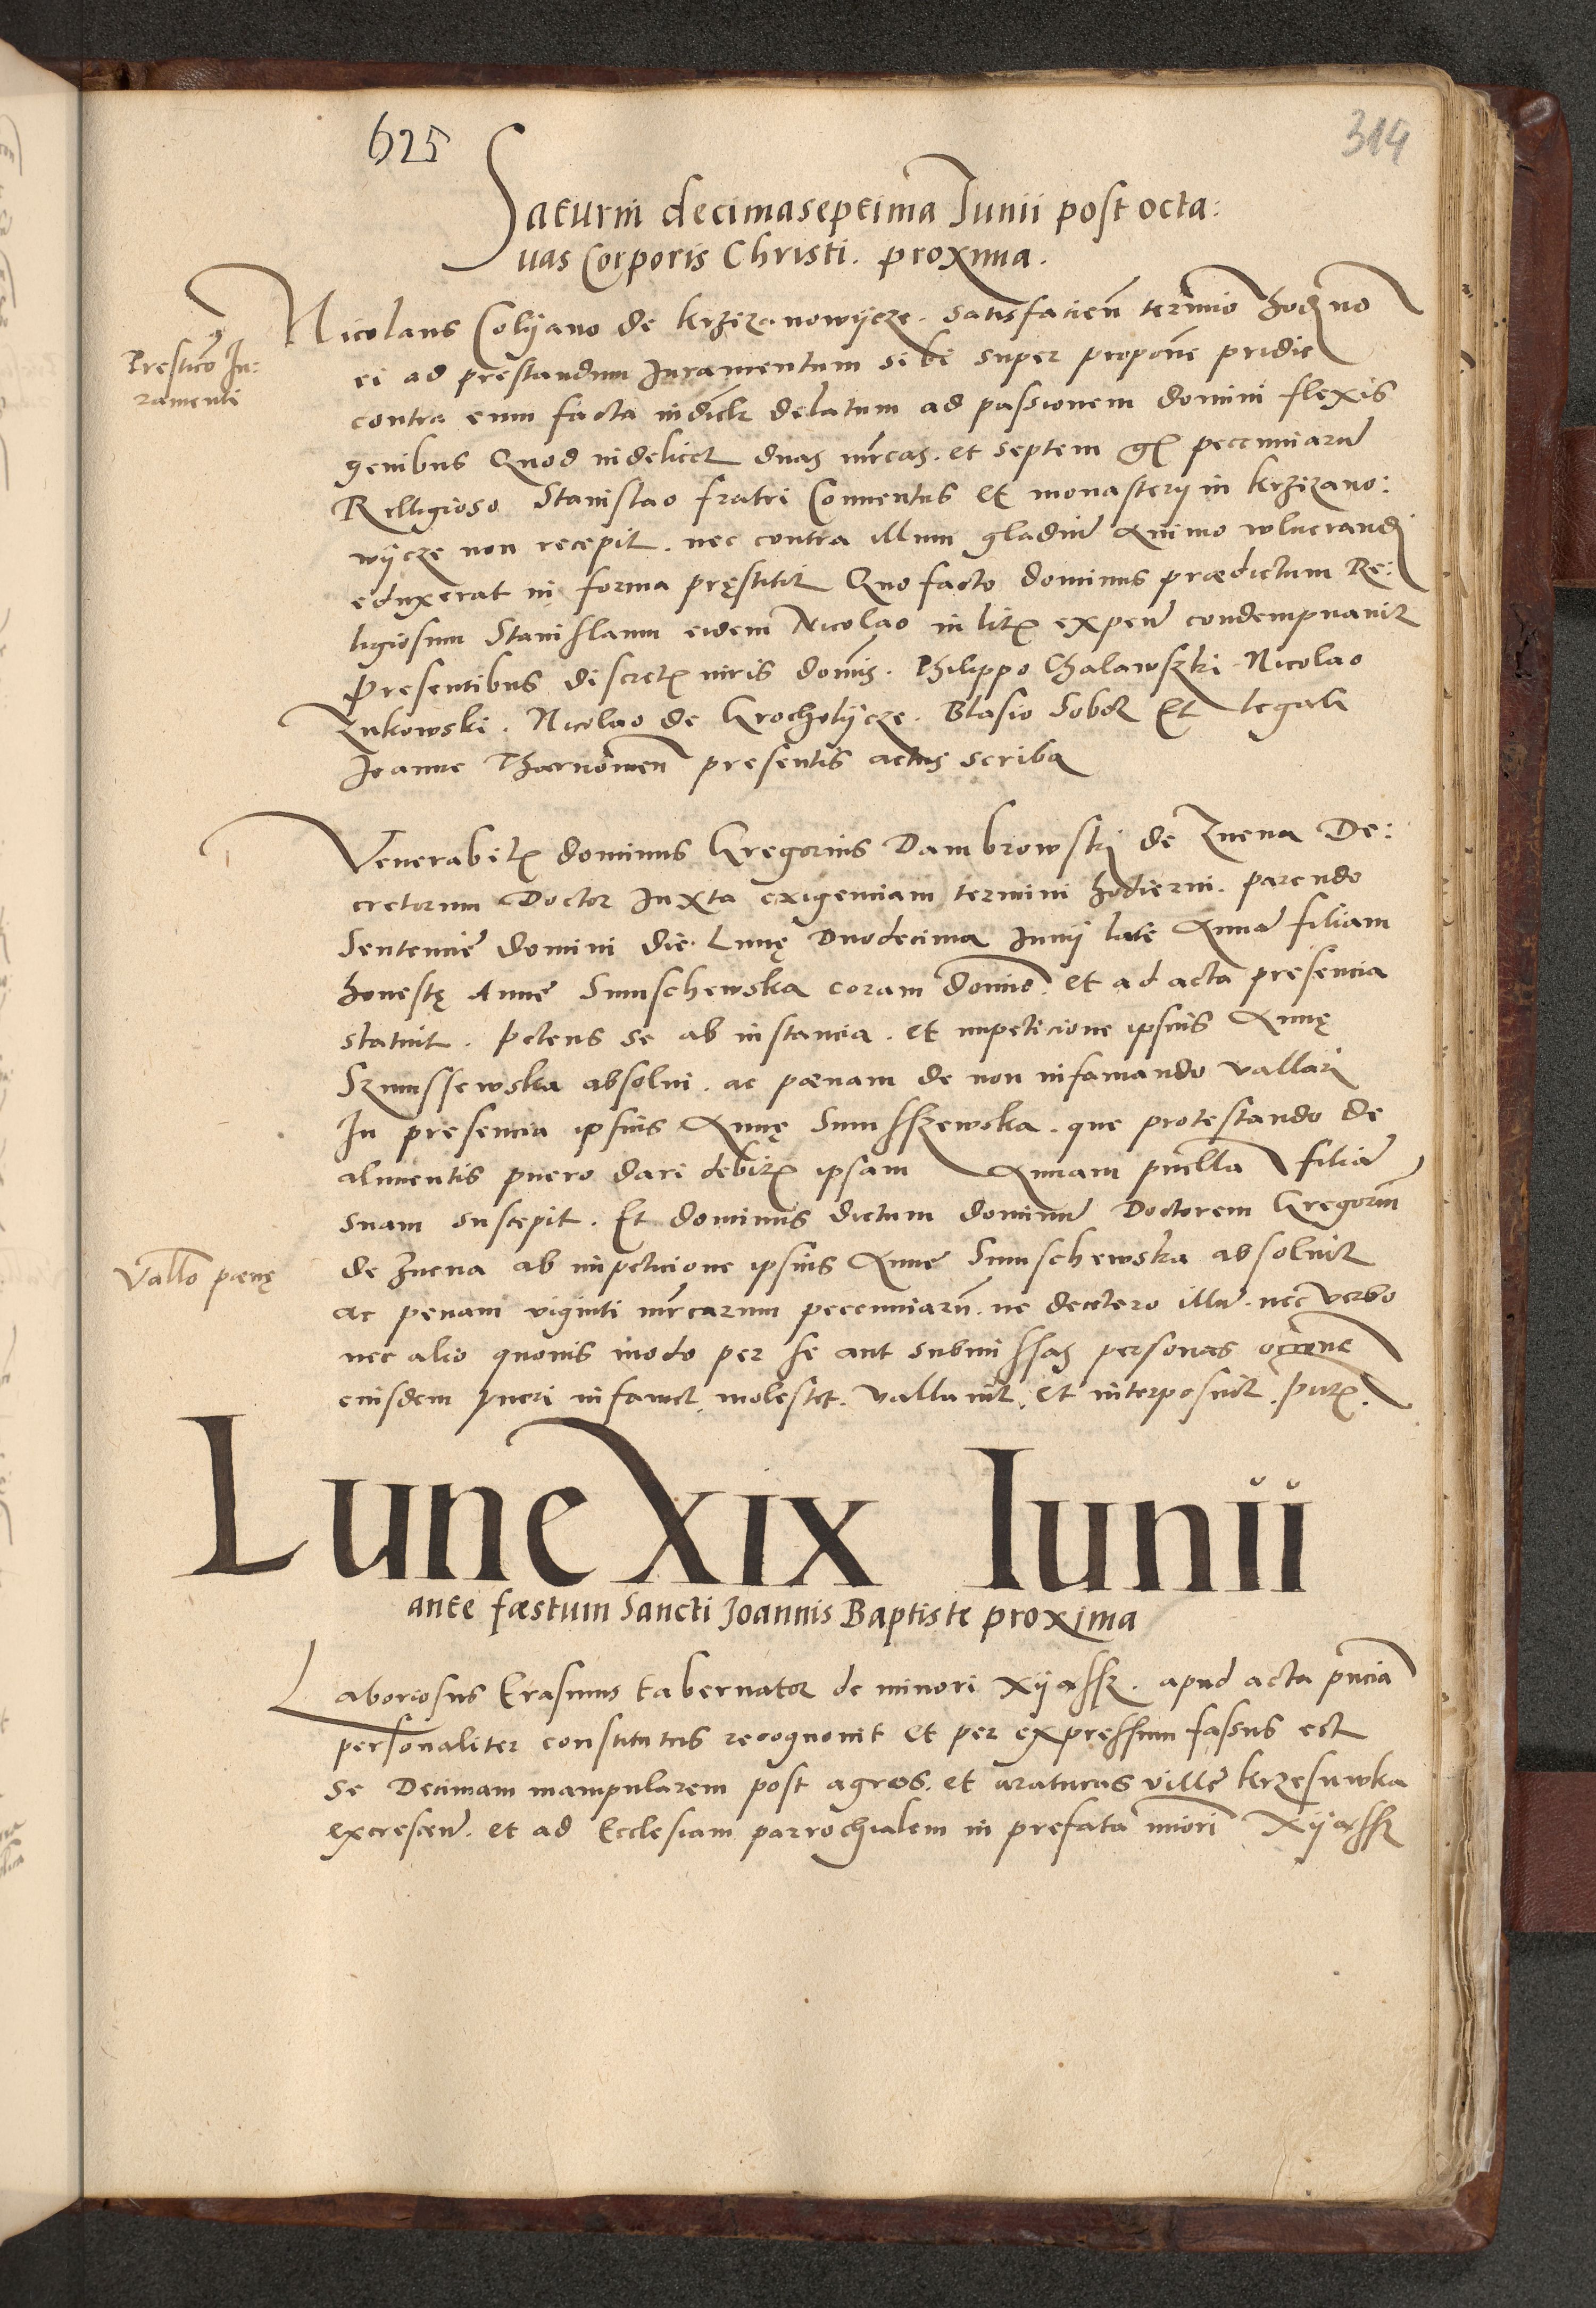 625
314
Saturni decimaseptima Iunii post octa:
uas Corporis Christi. proxima.
Nicolaus Colyano de krzizanowycze. Satisfacien̄ termīo hodno
Presticō Iu:
ramenti
ei ad prestandum Iuramentum sibi super propōne pridie
contra eum facta delatum ad passionem domini flexis
genibus Quod videlicet duas mrcas. et septem gr pecuniarū
Relligioso Stanislao fratri Conuentus et monasterij in krzizano:
wycze non recepit. nec contra illum gladiū Animo wlnerandi
eduxerat in forma pręstitit Quo facto dominus prædictum Re:
ligiosum Stanislaum eidem Nicolao in lit expen condempnauit
Presentibus discret viris domīs. Philippo Chalawszki. Nicolao
Zukowski. Nicolao de Grocholycze. Blasio Sobol Et legali
Joanne presentis actus scriba
Venerabil dominus Gregorius Dambrowski de Znena De:
cretorum Doctor Juxta exigenciam termini hodierni. parendo
Sentencie domini die. Lunę Duodecima Junij late Annā filiam
honestę Anne Sumschewska coram domīo. et ad acta presencia
statuit. petens se ab instancia. et impeticione ipsius Annę
Szumssewska absolui. ac pœnam de non infamando vallari
In presencia ipsius Annę Sumsszewska. que protestando de
alimentis puero dari debit ipsam Annam puellā filiā
suam suscepit. Et dominus dictum dominū Doctorem Gregoriū
Vallō pœnę
de Znena ab impeticione ipsius Anne Sumschewska absoluit
ac penam viginti mrcarum pecuniarū. ne decetero illū. nec verbo
nec alio quouis modo per se aut submissas personas occōne
eiusdem pueri infamet molestet. vallauit. et interposuit.
Lune XIX Iunii
ante fæstum Sancti Joannis Baptiste proxima
Laboriosus Erasmus tabernator de minori Xyassz. apud acta pn̄cia
personaliter constitutus recognouit et per expressum fassus est
se Decimam manipularem post agros. et araturas ville krzesuwka
excrescen. et ad Ecclesiam parrochialem in prefata miōri Xyassz